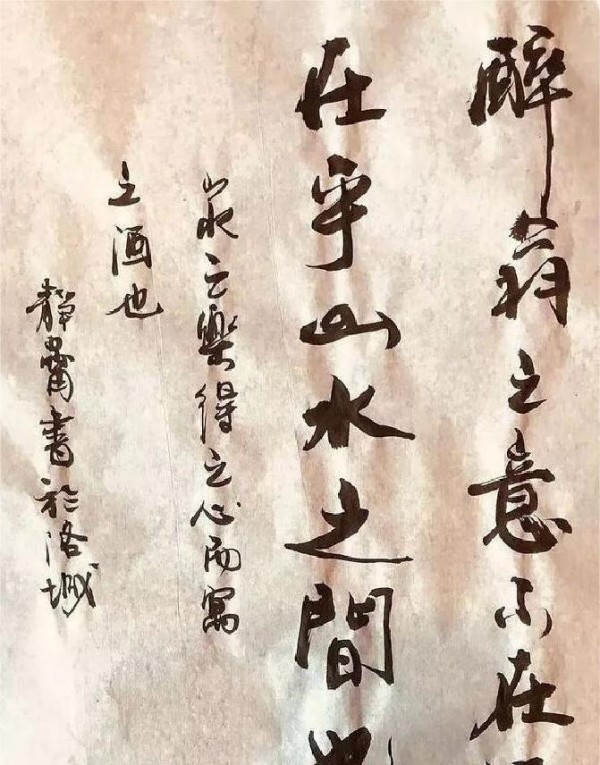 醉翁之意不在
在乎山水之間
山水之樂得之心而寓
之酒也
靜齋書於洛城